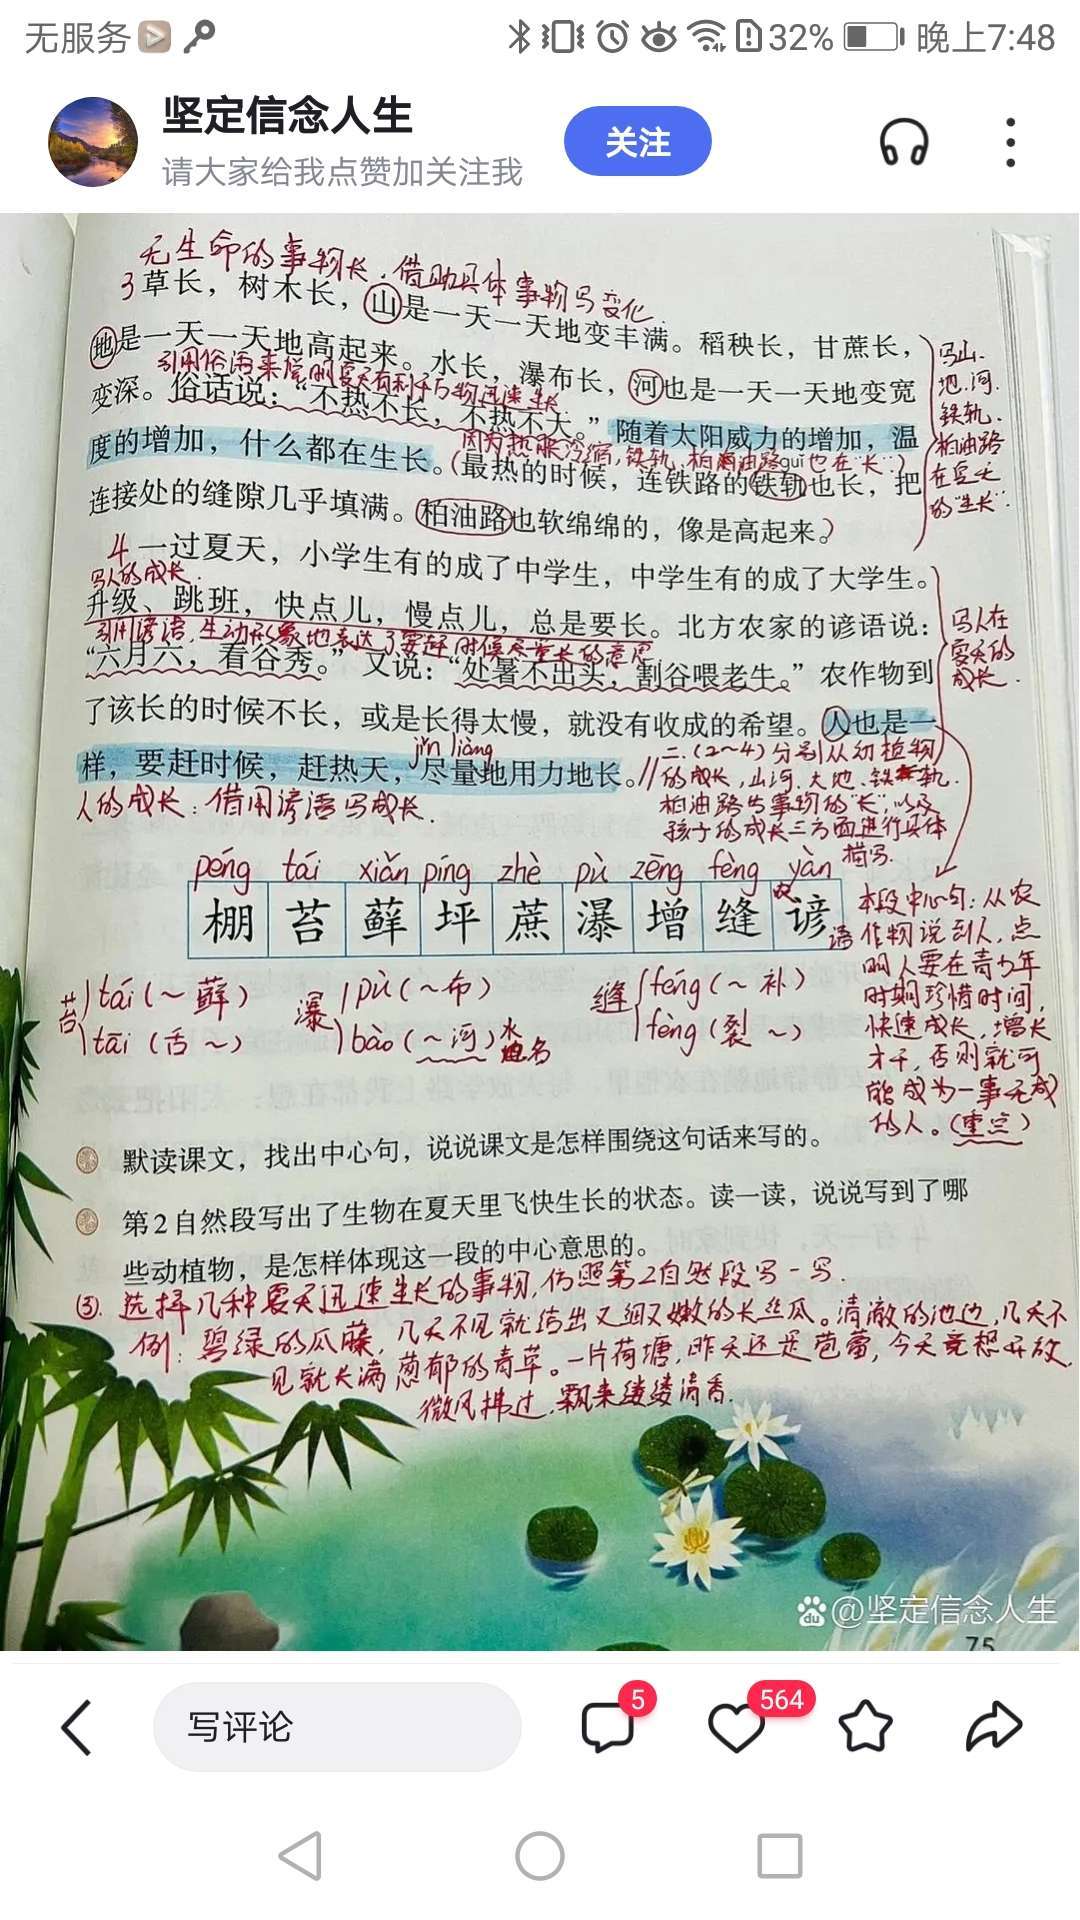 无服务 32% 晚上7:48
坚定信念人生
请大家给我点赞加关注我
关注
无生命的事物长,借助具体事物写变化.
3草长，树木长，山是一天一天地变丰满。稻秧长，甘蔗长，
地是一天一天地高起来。水长，瀑布长，河也是一天一天地变宽
引用俗语来说明夏天有利于万物迅速生长
变深。俗话说：“不热不长，不热不大。”随着太阳威力的增加，温
度的增加，什么都在生长。(最热的时候，连铁路的铁轨也长，把
因为热胀冷缩,铁轨、柏油路guǐ也在“长”.)
连接处的缝隙几乎填满。柏油路也软绵绵的，像是高起来。)
写山.
地.河.
铁轨.
柏油路
在夏天
的“生长”.
4一过夏天，小学生有的成了中学生，中学生有的成了大学生。
写人的成长.
升级、跳班，快点儿，慢点儿，总是要长。北方农家的谚语说：
引用谚语,生动形象地表达了要赶时候尽量长的意思
“六月六，看谷秀。”又说：“处暑不出头，割谷喂老牛。”农作物到
了该长的时候不长，或是长得太慢，就没有收成的希望。人也是一
jǐn liàng
样，要赶时候，赶热天，尽量地用力地长。//
写人在
夏天的
成长.
人的成长：借用谚语写成长.
二.(2~4)分别从动植物
的成长,山河、大地、铁轨.
柏油路等事物的“长”,以及
孩子的成长三方面进行具体
描写.
péng tái xiǎn píng zhè pù zēng fèng yàn
棚 苔 藓 坪 蔗 瀑 增 缝 谚语
苔 tái(~藓) 瀑 pù(~布) 缝 féng(~补)
tāi(舌~) bào(~河)水地名 fèng(裂~)
本段中心句：从农
作物说到人,点
明人要在青少年
时期珍惜时间,
快速成长,增长
才干,否则就可
能成为一事无成
的人。(重点)
默读课文，找出中心句，说说课文是怎样围绕这句话来写的。
第2自然段写出了生物在夏天里飞快生长的状态。读一读，说说写到了哪
些动植物，是怎样体现这一段的中心意思的。
③.选择几种夏天迅速生长的事物,仿照第2自然段写一写.
例：碧绿的瓜藤,几天不见就结出又细又嫩的长丝瓜。清澈的池边,几天不
见就长满葱郁的青草。一片荷塘,昨天还是苞蕾,今天竟想开放,
微风拂过,飘来缕缕清香.
du @坚定信念人生
75
写评论 5 564